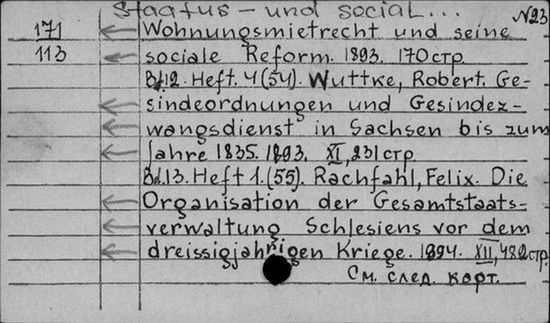 Staatus - und social... №23
171 Wohnungsmietrecht und seine
113 sociale Reform. 1893. 170стр.
Bd.12. Heft. 4(54). Wuttke, Robert. Ge-
sindeordnungen und Gesindez-
wangsdienst in Sachsen bis zum
Jahre 1835. 1893. XI, 231стр.
Bd.13. Heft 1.(55). Rachfahl, Felix. Die
Organisation der Gesamtstaats-
verwaltung Schlesiens vor dem
dreissigjahrigen Kriege. 1894. XII, 482стр.
См. след. карт.